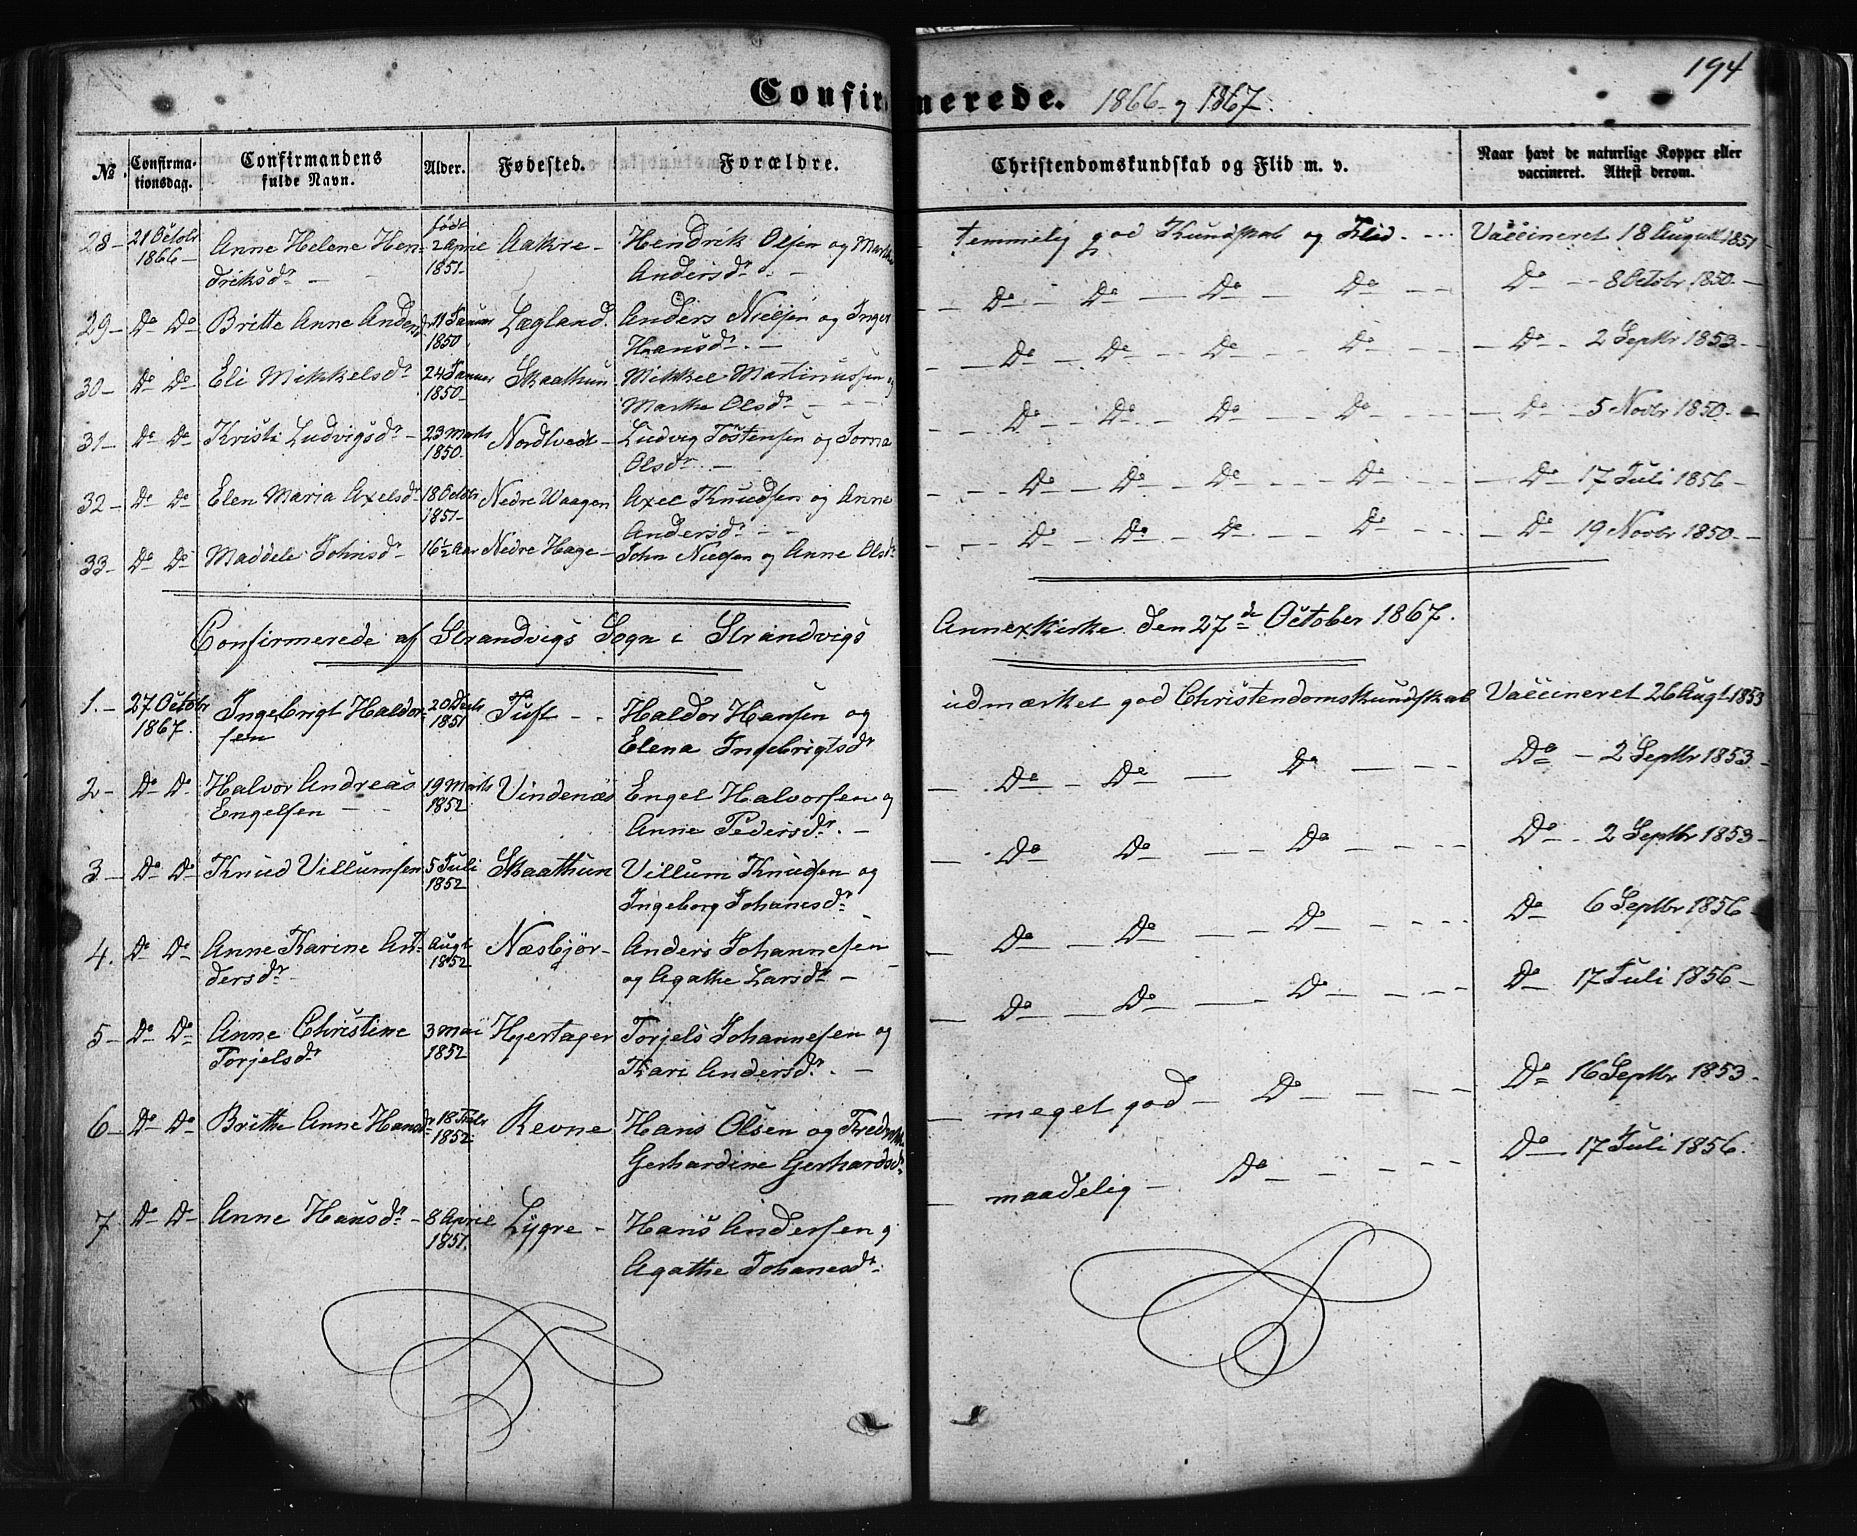 194
Confirmerede. 1866 og 1867.
No. Confirmationsdag. Confirmandens fulde Navn. Alder. Fødested. Forældre. Christendomskundskab og Flid m. v. Naar havt de naturlige Kopper eller vaccineret. Attest derom.
28 – 21 Octobr 1866 – Anne Helene Hendriksdr – født 2 April 1851 – Aakre – Hendrik Olsen og Martha Andersdr. – temmelig god Kundskab og Flid. – Vaccineret 18 August 1851
29 – Do Do Britte Anne Andersdr 11 Januar 1850 Lægland. Anders Nielsen og Inger Hansdr. – Do – Do – Do – Do – Do – 8 Octobr 1850 –
30 – Do Do Eli Mikkelsdr 24 Januar 1850 – Skaathun Mikkel Martinussen og Marthe Olsdr – Do – Do – Do – Do – Do – 2 Septbr 1853 –
31 – Do Do Kristi Ludvigsdr – 23 Marts 1850. Nordtvedt – Ludvig Tostensen og Jorna Olsdr. – Do – Do – Do – Do – Do – 5 Novbr 1850 –
32 – Do Do Elen Maria Axelsdr 18 Octobr 1851 – Nedre Waagen Axel Knudsen og Anne Andersdr – Do – Do – Do – Do – Do 17 Juli 1856 –
33 – Do Do Maddele Johnsdr – 16½ Aar Nedre Hage – John Nielsen og Anne Olsdr – Do – Do – Do – Do – Do 19 Novbr 1850 –
Confirmerede af Strandvigs Sogn i Strandvigs Annexkirke den 27de October 1867.
1. – 27 Octobr 1867. Ingebrigt Haldorsen 20 Decbr 1851 Tuft – Haldor Hansen og Elena Ingebrigtsdr udmærket god Christendomskundskab Vaccineret 26 Augt 1853
2 – Do Do Halvor Andreas Engelsen – 19 Marts 1852 Vindenæs Engel Halvorsen og Anne Pedersdr. – Do – Do – Do – Do – 2 Septbr 1853 –
3 – Do Do Knud Villumsen 5 Juli 1852 Skaathun Villum Knudsen og Ingeborg Johanesdr. – Do Do – Do – Do – 2 Septbr 1853 –
4. Do Do Anne Karine Andersdr – Augt 1852 Næsbjør – Anders Johannesen og Agathe Larsdr – Do Do – Do – Do 6 Septbr 1856 –
5 – Do Do Anne Christine Torjelsdr 3 Mai 1852 Hjertager Torjels Johannesen og Kari Andersdr. – Do Do – Do – Do – 17 Juli 1856 –
6 – Do Do Britthe Anne Hansdr 18 Febr 1852. Revne Hans Olsen og Fredrikke Gerhardine Gerhardsdr – meget god – Do – Do 16 Septbr 1853 –
7 Do Do Anne Hansdr – 8 April 1851. Lygre – Hans Andersen og Agathe Johanesdr – maadelig – Do – Do – 17 Juli 1856.